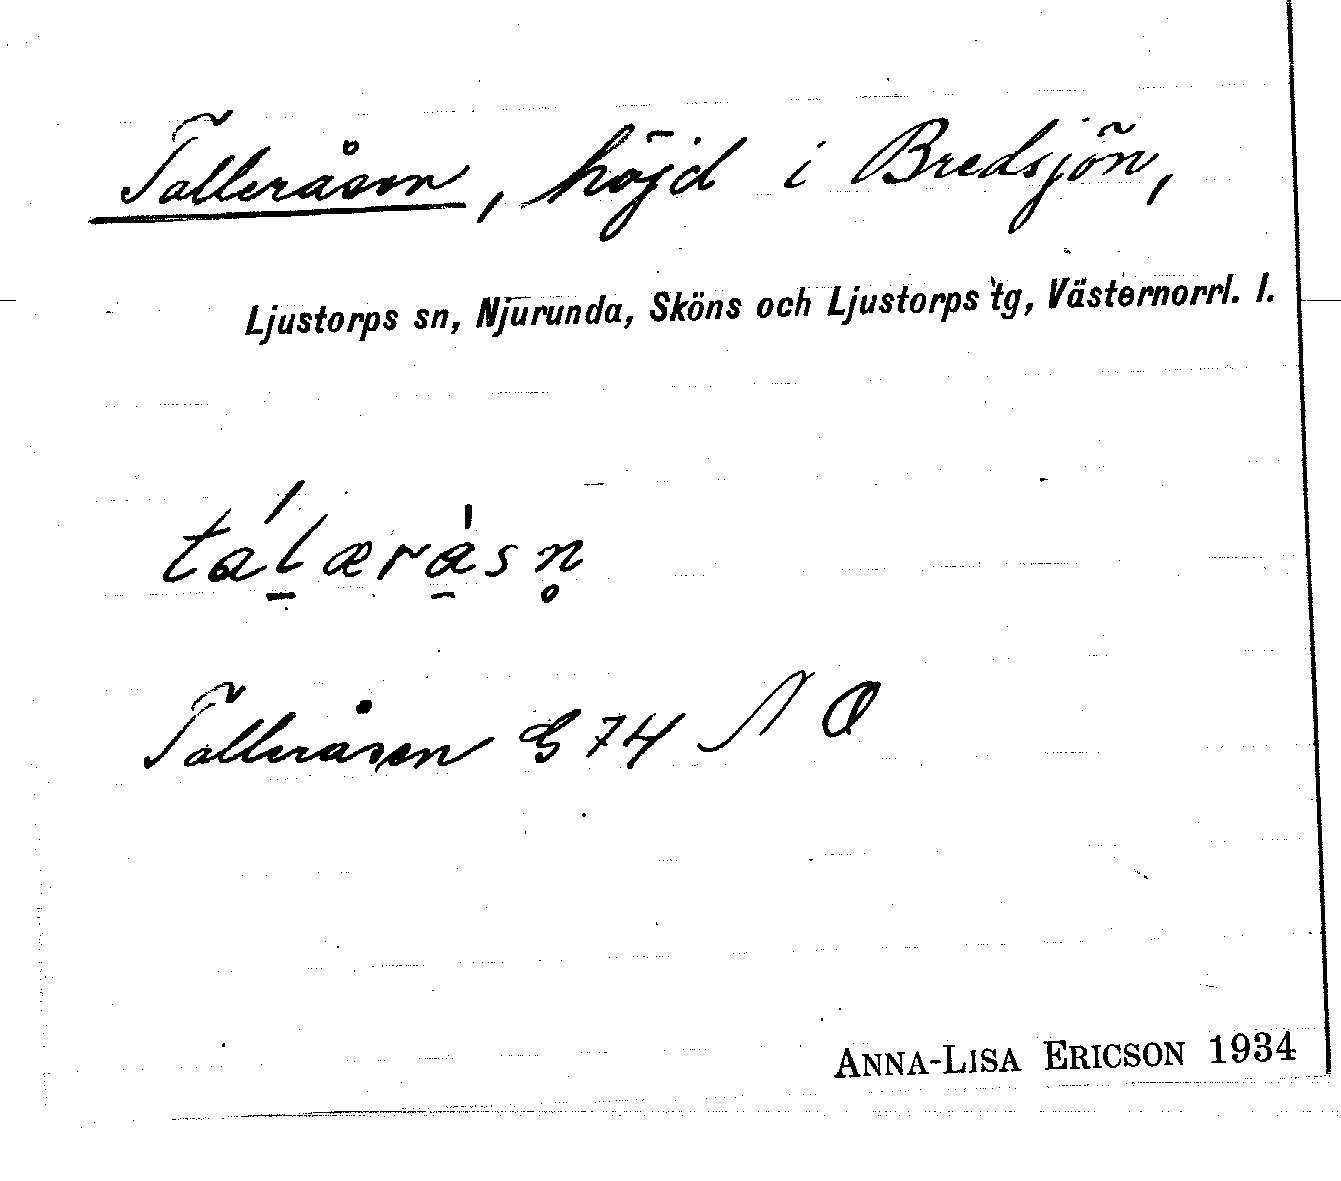 Talleråsen, höjd i Bredsjön,
Ljustorps sn, Njurunda, Sköns och Ljustorps tg, Västernorrl. l.
ta̍læra̍sn̥
Talleråsen G 74 N O
ANNA-LISA ERICSON 1934